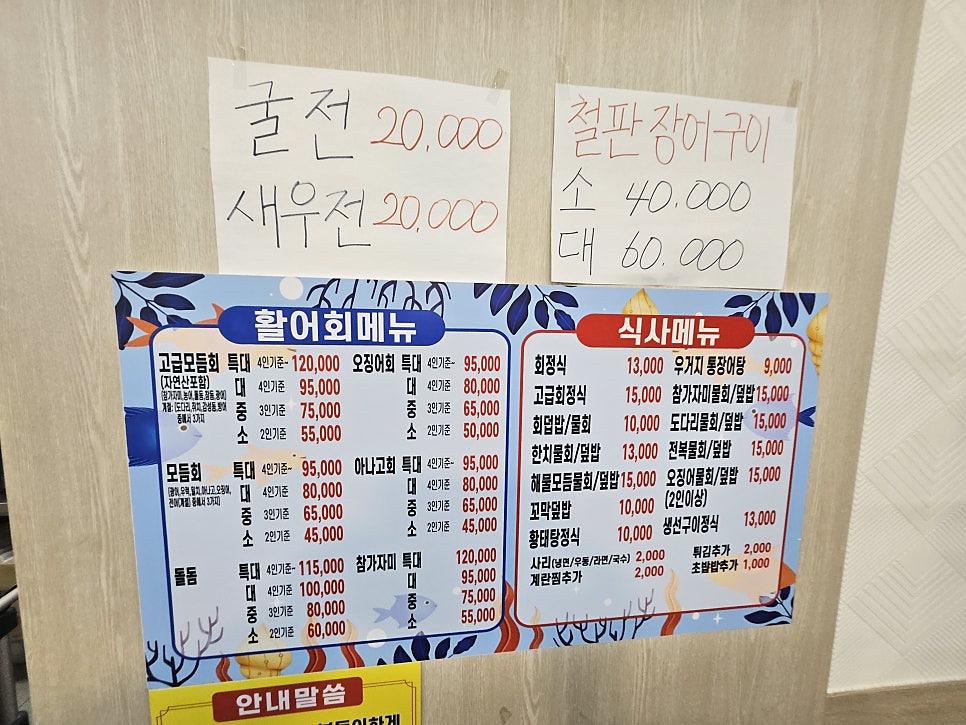 굴전 20,000
새우전 20,000
철판장어구이
소 40.000
대 60.000
활어회메뉴
고급모듬회 특대 4인기준~ 120,000
(자연산포함) 대 4인기준 95,000
중 3인기준 75,000
소 2인기준 55,000
모듬회 특대 4인기준~ 95,000
대 4인기준 80,000
중 3인기준 65,000
소 2인기준 45,000
돌돔 특대 4인기준~ 115,000
대 4인기준 100,000
중 3인기준 80,000
소 2인기준 60,000
오징어회 특대 4인기준~ 95,000
대 4인기준 80,000
중 3인기준 65,000
소 2인기준 50,000
아나고회 특대 4인기준~ 95,000
대 4인기준 80,000
중 3인기준 65,000
소 2인기준 45,000
참가자미 특대 120,000
대 95,000
중 75,000
소 55,000
식사메뉴
회정식 13,000
고급회정식 15,000
회덮밥/물회 10,000
한치물회/덮밥 13,000
해물모듬물회/덮밥 15,000
꼬막덮밥 10,000
황태탕정식 10,000
사리(냉면/우동/라면/국수) 2,000
계란찜추가 2,000
우거지 통장어탕 9,000
참가자미물회/덮밥 15,000
도다리물회/덮밥 15,000
전복물회/덮밥 15,000
오징어물회/덮밥 15,000
(2인이상)
생선구이정식 13,000
튀김추가 2,000
초밥밥추가 1,000
안내말씀